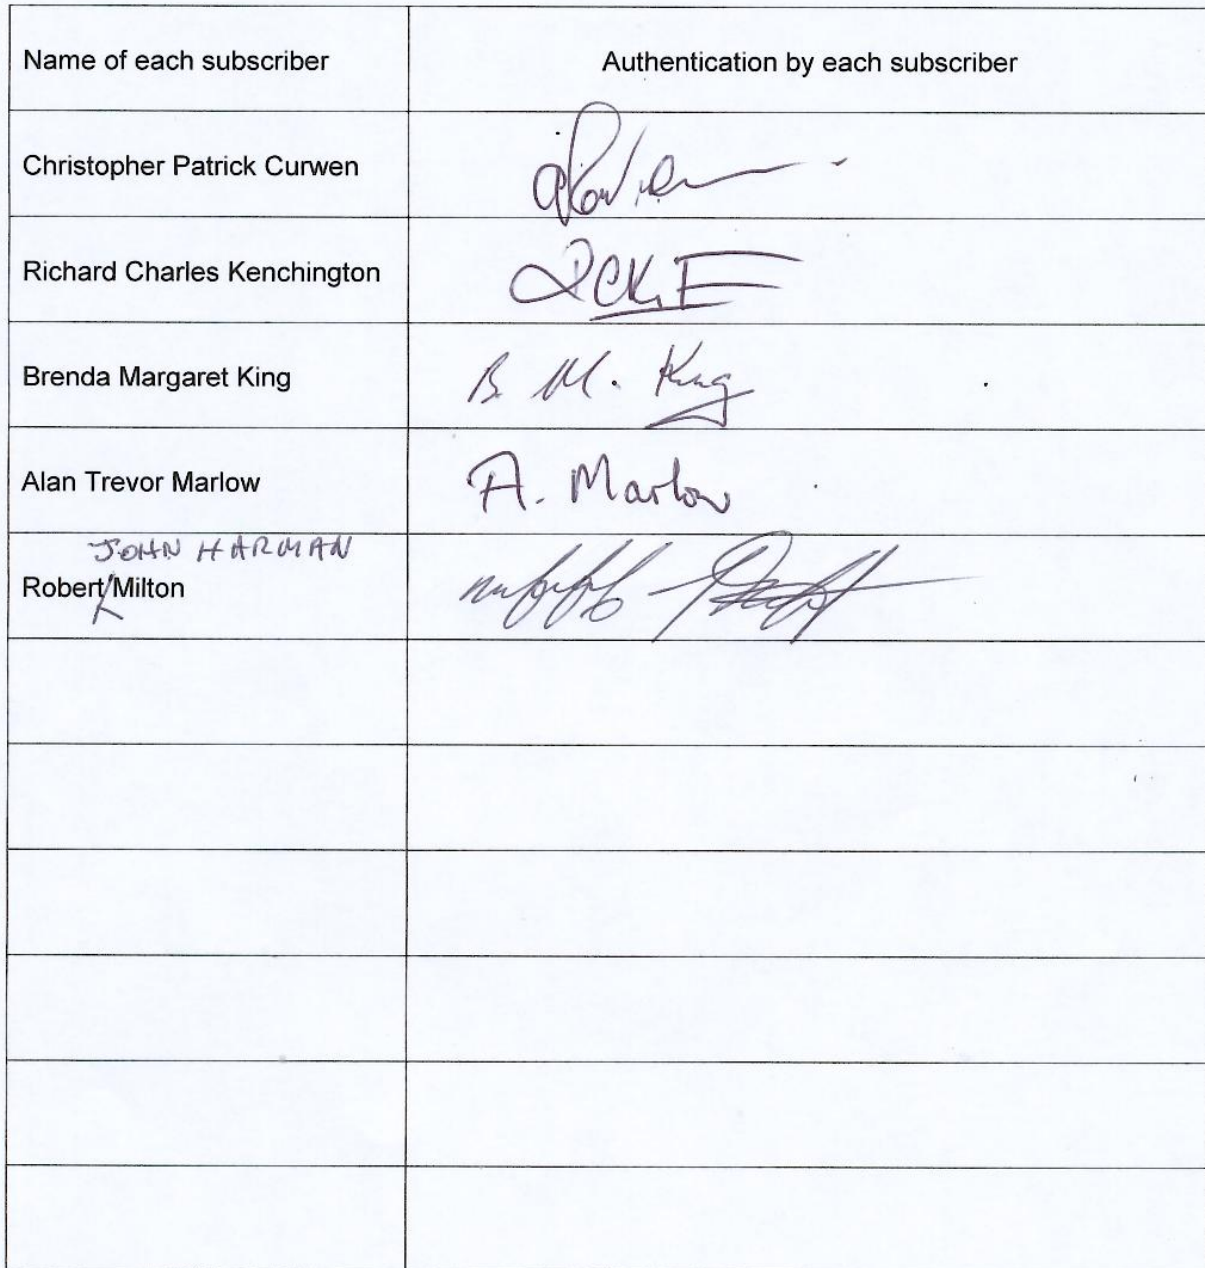 Name of each subscriber
Authentication by each subscriber
Christopher Patrick Curwen
Richard Charles Kenchington
RCKE
Brenda Margaret King
B. M. King
Alan Trevor Marlow
A. Marlow
JOHN HARMAN
Robert Milton